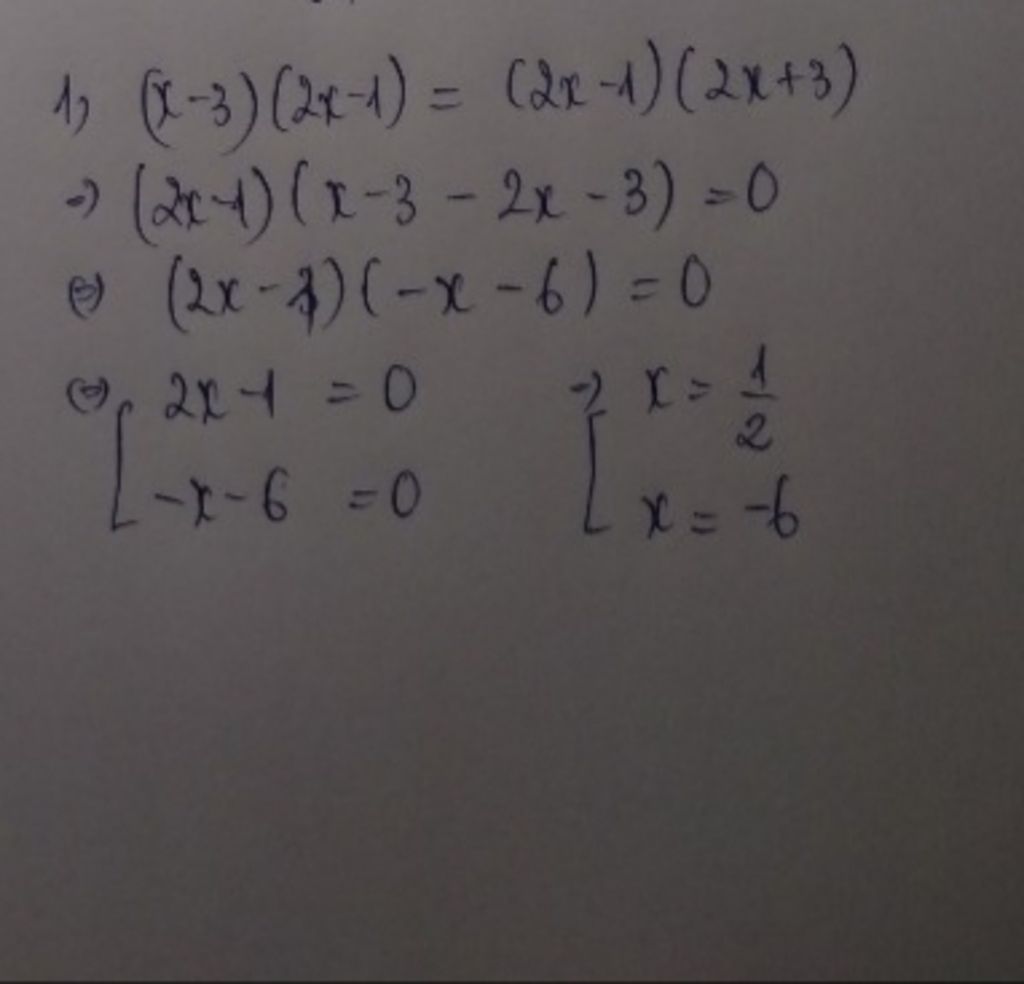 1, (x-3)(2x-1) = (2x-1)(2x+3)
=> (2x-1)(x-3-2x-3) = 0
<=> (2x-1)(-x-6) = 0
<=> [ 2x-1 = 0 => [ x = 1/2
-x-6 = 0 x = -6